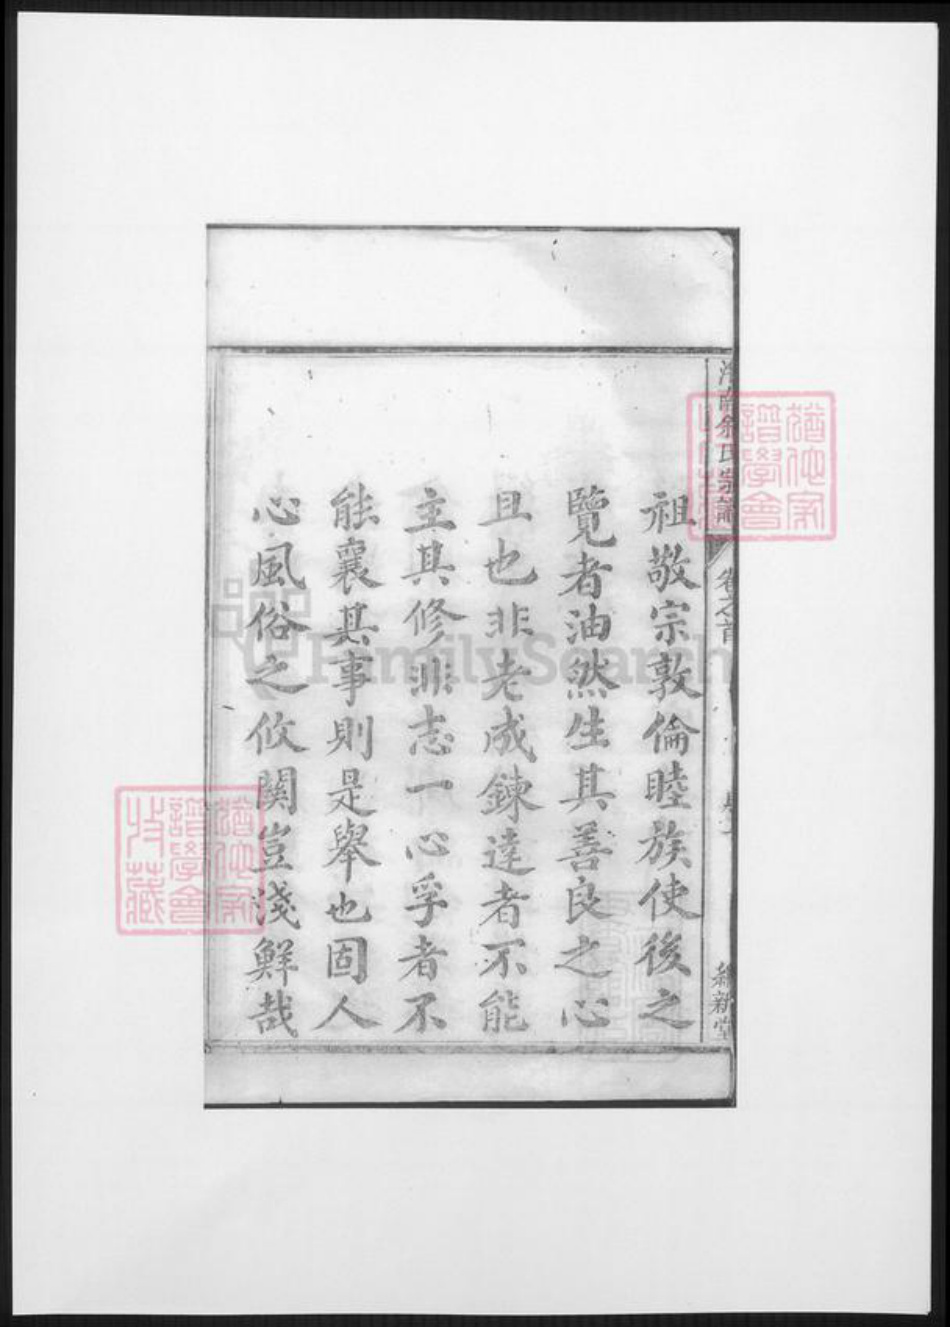 余氏宗譜
卷之首
新堂
祖敬宗敦倫睦族使後之
覽者油然生其善良之心
且也非老成鍊達者不能
主其修非志一心孚者不
能襄其事則是舉也固人
心風俗之攸関豈淺鮮哉
FamilySearch
譜學會
收藏
譜學會